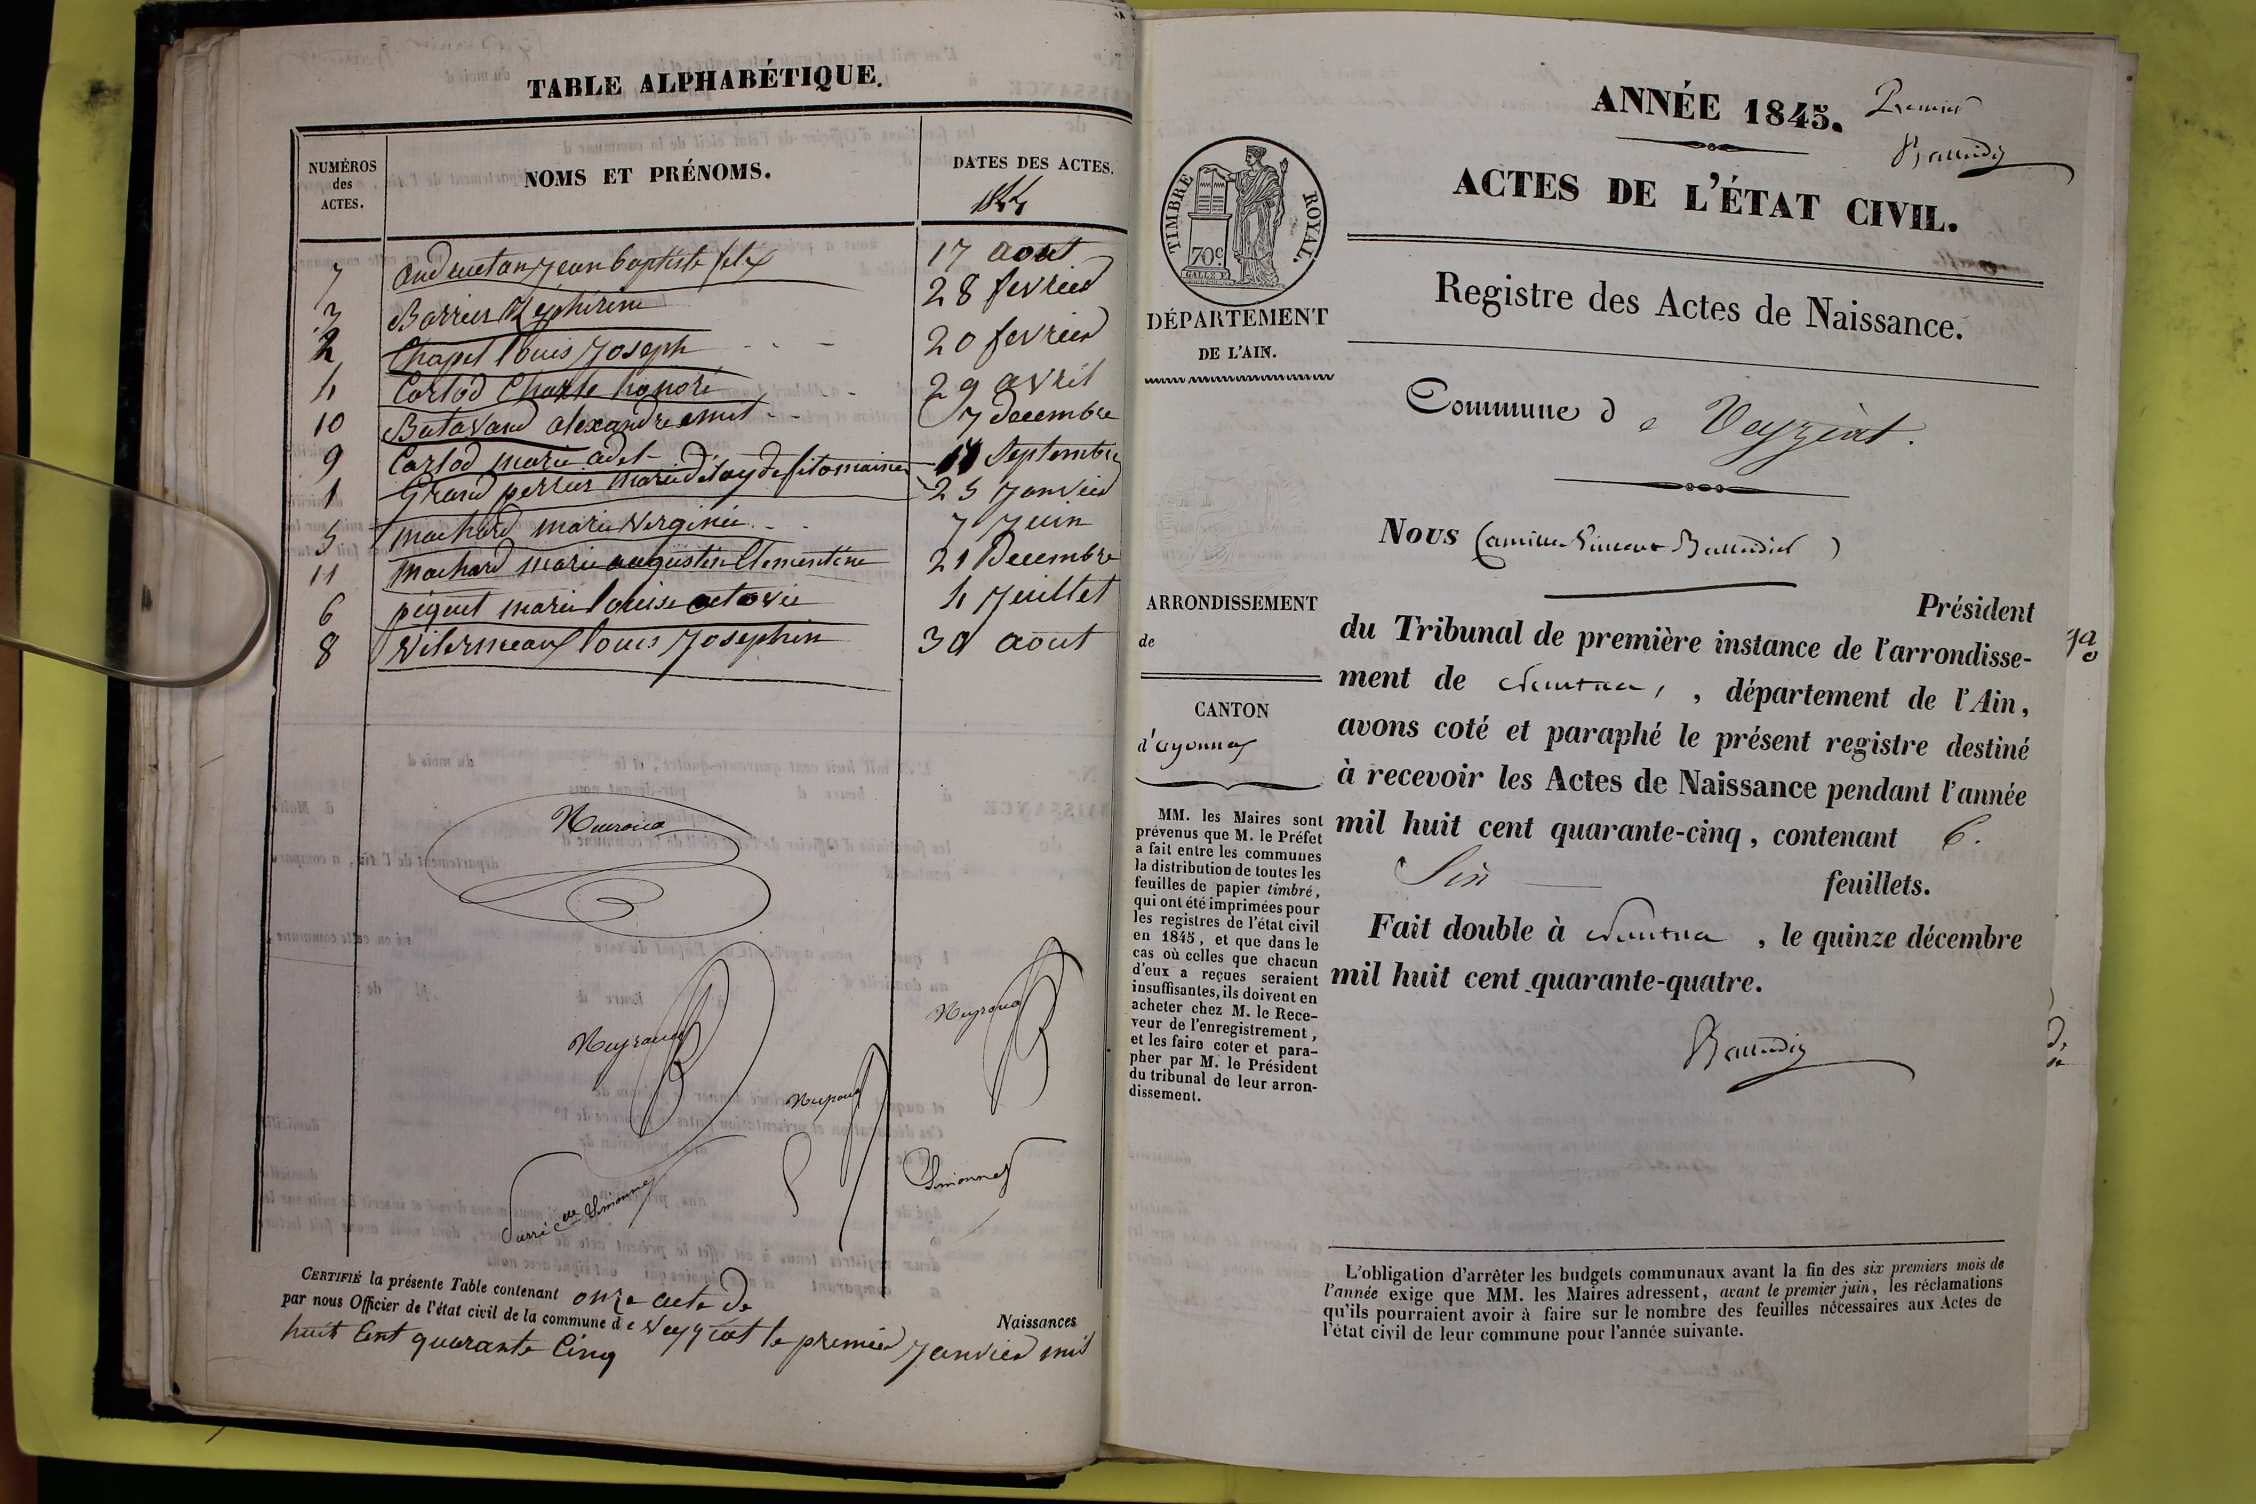 TABLE ALPHABÉTIQUE.
NUMÉROS des ACTES.
NOMS ET PRÉNOMS.
DATES DES ACTES.
1844
7 Jean baptiste felix 17 aout
3 Barrier Zéphirine 28 fevrier
2 Chapel louis Joseph 20 fevrier
4 Carlod Charle honoré 29 avril
10 alexandre 7 decembre
9 Carlod marie adel Septembre
1 Grand perrier marie 25 Janvier
5 machard marie Verginie 7 Juin
11 machard marie augustin Clementine 21 Decembre
6 piquet marie louise octavie 4 Juillet
8 Vilermeaux louis Josephin 30 aout
CERTIFIÉ la présente Table contenant onze acte de Naissances
par nous Officier de l'état civil de la commune de Veyziat le premier Janvier mil
huit Cent quarante Cinq
ANNÉE 1845.
Premier
ACTES DE L'ÉTAT CIVIL.
TIMBRE ROYAL.
70c
Registre des Actes de Naissance.
DÉPARTEMENT
DE L'AIN.
Commune de Veyziat.
Nous Camille
Président
ARRONDISSEMENT
de
du Tribunal de première instance de l'arrondisse-
ment de Nantua, , département de l'Ain,
CANTON
d'oyonnax
avons coté et paraphé le présent registre destiné
à recevoir les Actes de Naissance pendant l'année
mil huit cent quarante-cinq, contenant 6.
Six feuillets.
Fait double à Nantua, le quinze décembre
mil huit cent quarante-quatre.
MM. les Maires sont
prévenus que M. le Préfet
a fait entre les communes
la distribution de toutes les
feuilles de papier timbré,
qui ont été imprimées pour
les registres de l'état civil
en 1845, et que dans le
cas où celles que chacun
d'eux a reçues seraient
insuffisantes, ils doivent en
acheter chez M. le Rece-
veur de l'enregistrement,
et les faire coter et para-
pher par M. le Président
du tribunal de leur arron-
dissement.
L'obligation d'arrêter les budgets communaux avant la fin des six premiers mois de
l'année exige que MM. les Maires adressent, avant le premier juin, les réclamations
qu'ils pourraient avoir à faire sur le nombre des feuilles nécessaires aux Actes de
l'état civil de leur commune pour l'année suivante.